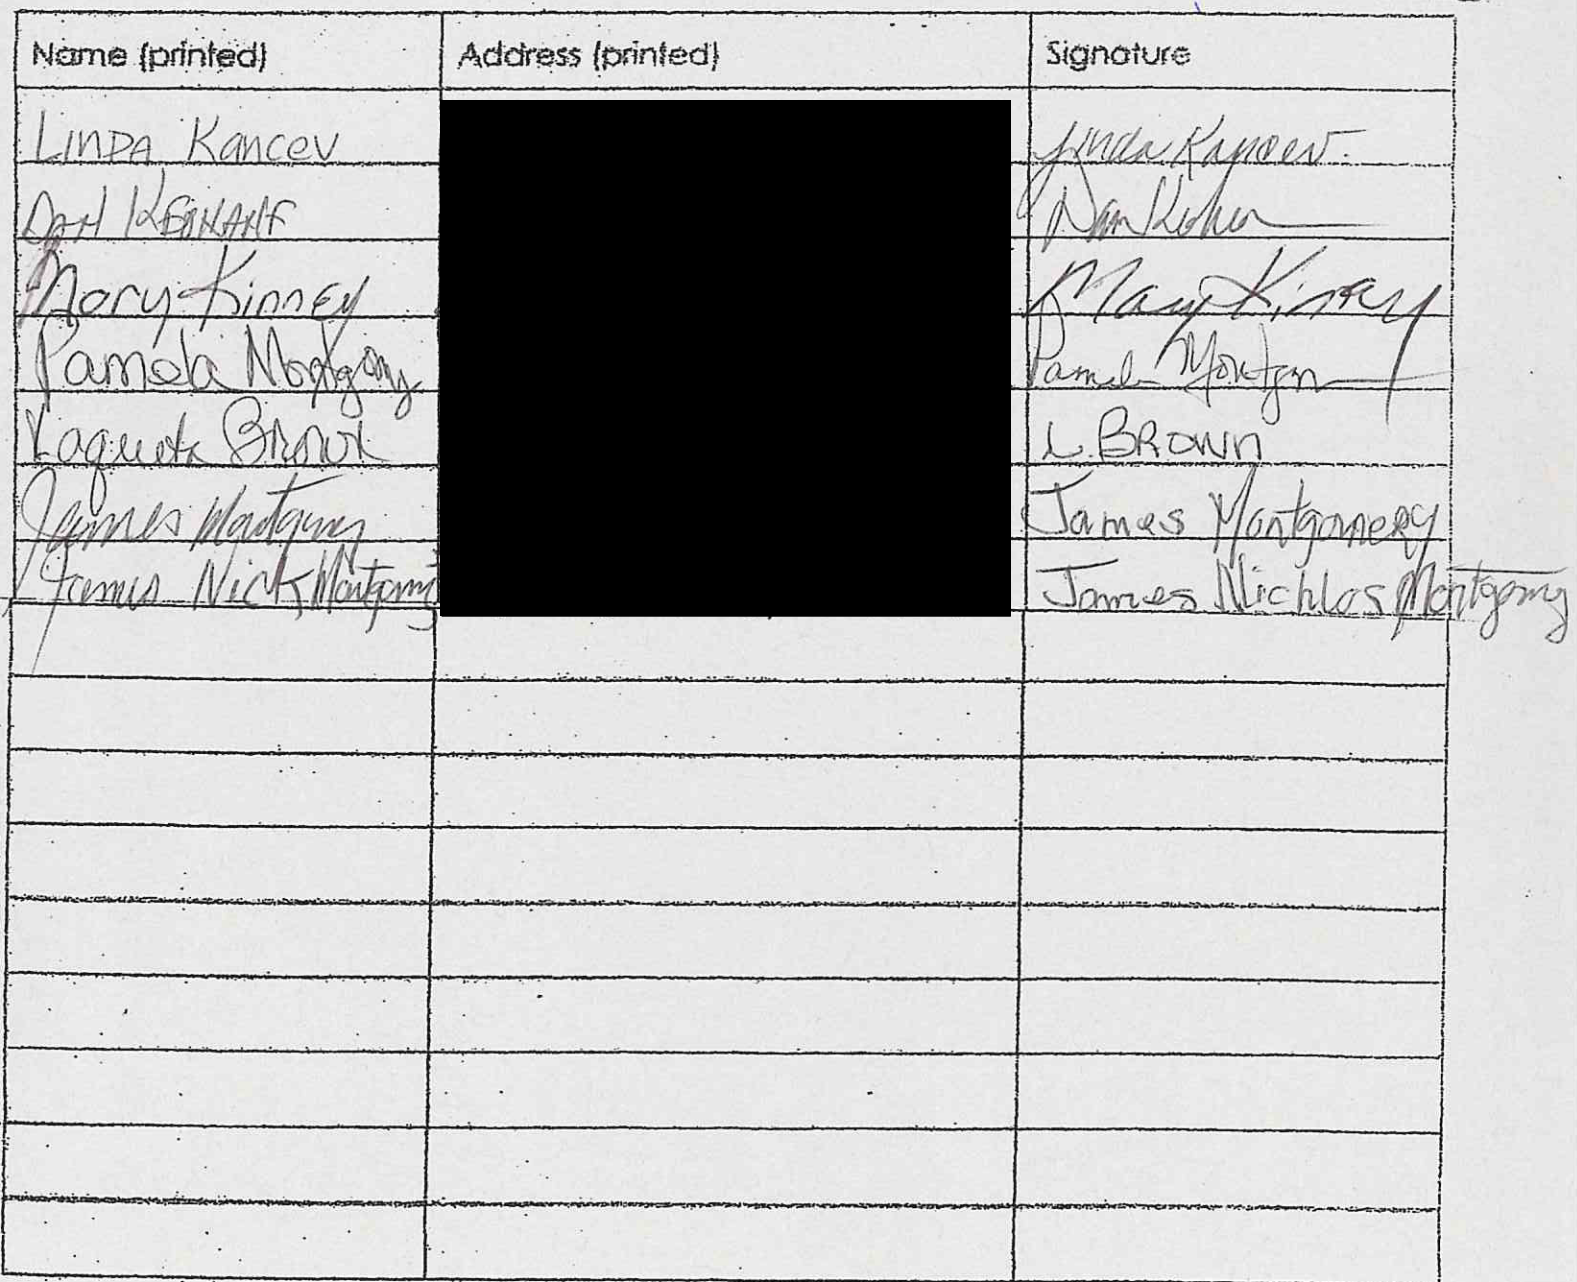 Name (printed) Address (printed) Signature
LINDA Kancev Linda Kancev
DAN Dan
Mary Kinney Mary Kinney
Pamela Montgomy Pamela Montgom
Laqueta Brown L. BROWN
James Montgomery James Montgomery
James Nick Montgomy James Nichlos Montgomy